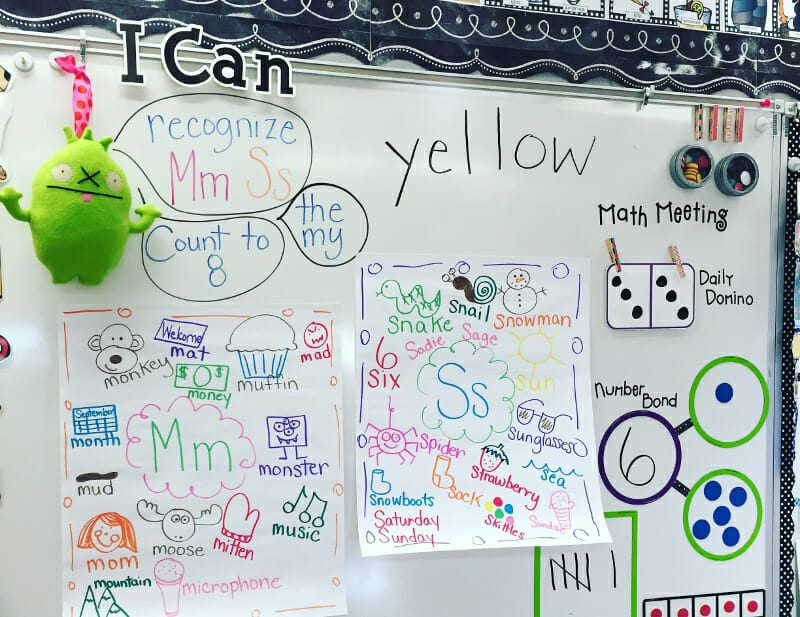 I Can
recognize
Mm Ss
the
my
Count to
8
yellow
Math Meeting
Daily
Domino
Number
Bond
6
monkey
Welcome
mat
muffin
mad
$ $
money
September
month
Mm
monster
mud
mom
moose
mitten
music
mountain
microphone
Snake
Snail
Snowman
Sadie
Sage
6
Six
Ss
Sun
Sunglasses
Spider
Snowboots
Sock
Strawberry
Sea
Skittles
Sundae
Saturday
Sunday